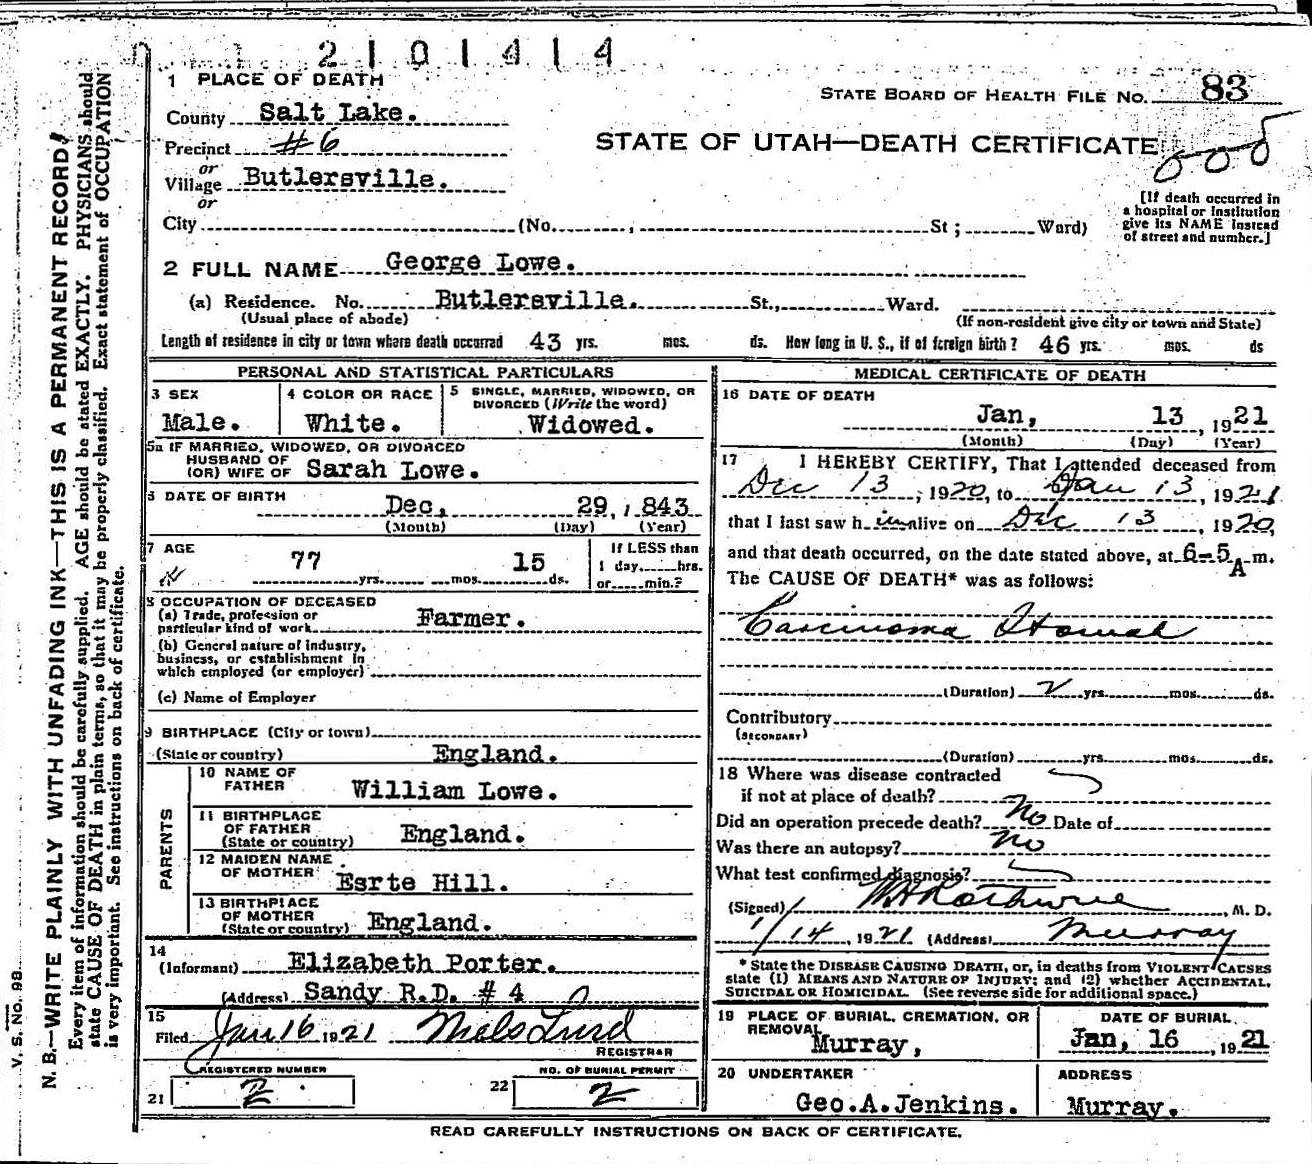 2101414
1 PLACE OF DEATH
STATE BOARD OF HEALTH FILE NO. 83
County Salt Lake.
Precinct #6
STATE OF UTAH—DEATH CERTIFICATE
or
Village Butlersville.
or
[If death occurred in
a hospital or institution
give its NAME instead
of street and number.]
City (No. , St ; Ward)
2 FULL NAME George Lowe.
(a) Residence. No. Butlersville. St., Ward.
(Usual place of abode) (If non-resident give city or town and State)
Length of residence in city or town where death occurred 43 yrs. mos. ds. How long in U. S., if of foreign birth? 46 yrs. mos. ds
PERSONAL AND STATISTICAL PARTICULARS
3 SEX
Male.
4 COLOR OR RACE
White.
5 SINGLE, MARRIED, WIDOWED, OR
DIVORCED (Write the word)
Widowed.
5a IF MARRIED, WIDOWED, OR DIVORCED
HUSBAND OF
(OR) WIFE OF Sarah Lowe.
6 DATE OF BIRTH
Dec, 29, 1843
(Month) (Day) (Year)
7 AGE
77 yrs. mos. 15 ds.
If LESS than
1 day, hrs.
or min.?
8 OCCUPATION OF DECEASED
(a) Trade, profession or
particular kind of work Farmer.
(b) General nature of industry,
business, or establishment in
which employed (or employer)
(c) Name of Employer
9 BIRTHPLACE (City or town)
(State or country) England.
PARENTS
10 NAME OF
FATHER William Lowe.
11 BIRTHPLACE
OF FATHER
(State or country) England.
12 MAIDEN NAME
OF MOTHER Esrte Hill.
13 BIRTHPLACE
OF MOTHER
(State or country) England.
14
(Informant) Elizabeth Porter.
(Address) Sandy R.D. # 4
15
Filed Jan 16 1921 Niels Lind
REGISTRAR
REGISTERED NUMBER
21 2
NO. OF BURIAL PERMIT
22 2
MEDICAL CERTIFICATE OF DEATH
16 DATE OF DEATH
Jan, 13, 1921
(Month) (Day) (Year)
17 I HEREBY CERTIFY, That I attended deceased from
Dec 13, 1920, to Jan 13, 1921
that I last saw h im alive on Dec 13, 1920,
and that death occurred, on the date stated above, at 6-5 A m.
The CAUSE OF DEATH* was as follows:
Carcinoma Stomach
(Duration) 2 yrs. mos. ds.
Contributory
(SECONDARY)
(Duration) yrs. mos. ds.
18 Where was disease contracted
if not at place of death?
Did an operation precede death? No Date of
Was there an autopsy? No
What test confirmed diagnosis?
(Signed) , M. D.
1/14, 1921 (Address) Murray
* State the DISEASE CAUSING DEATH, or, in deaths from VIOLENT CAUSES
state (1) MEANS AND NATURE OF INJURY; and (2) whether ACCIDENTAL,
SUICIDAL OR HOMICIDAL. (See reverse side for additional space.)
19 PLACE OF BURIAL, CREMATION, OR
REMOVAL
Murray,
DATE OF BURIAL
Jan, 16, 1921
20 UNDERTAKER
Geo.A.Jenkins.
ADDRESS
Murray.
READ CAREFULLY INSTRUCTIONS ON BACK OF CERTIFICATE.
V. S. No. 98
N. B.—WRITE PLAINLY WITH UNFADING INK—THIS IS A PERMANENT RECORD!
Every item of information should be carefully supplied. AGE should be stated EXACTLY. PHYSICIANS should
state CAUSE OF DEATH in plain terms, so that it may be properly classified. Exact statement of OCCUPATION
is very important. See instructions on back of certificate.